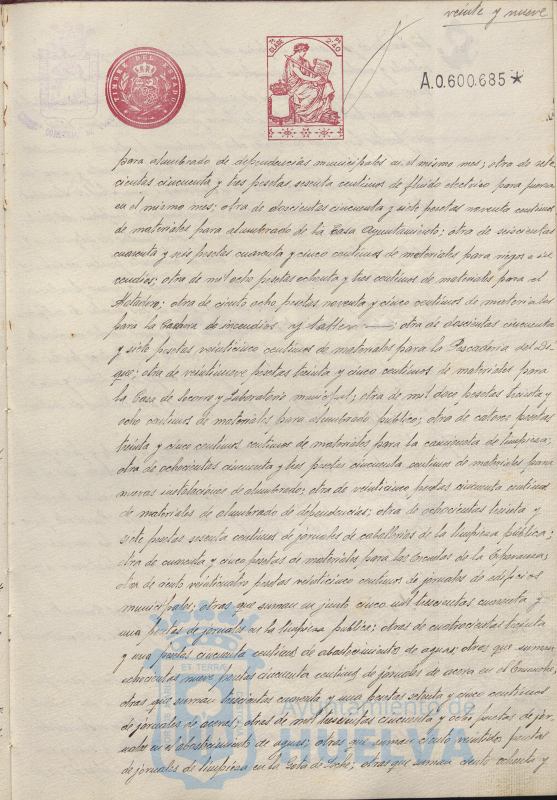 veinte y nueve
TIMBRE DEL ESTADO
2'40
A.0.600.685*
para alumbrado de dependencias municipales en el mismo mes; otra de sete
cientas cincuenta y tres pesetas sesenta centimos de fluido electrico para fuerza
en el mismo mes; otra de doscientas cincuenta y siete pesetas noventa centimos
de materiales para alumbrado de la Casa Ayuntamiento; otra de seiscientas
cuarenta y seis pesetas cuarenta y cinco centimos de materiales para riegos e in
cendios; otra de mil ocho pesetas ochenta y tres centimos de materiales para el
Matadero; otra de ciento ocho pesetas noventa y cinco centimos de materiales
para la de incendios y taller; otra de doscientas cincuenta
y siete pesetas veinticinco centimos de materiales para la Pescaderia del Di
que; otra de veintinueve pesetas treinta y cinco centimos de materiales para
la Casa de Socorro y Laboratorio municipal; otra de mil doce pesetas treinta y
ocho centimos de materiales para alumbrado publico; otra de catorce pesetas
treinta y cinco centimos centimos de materiales para la camioneta de limpieza;
otra de ochocientas cincuenta y tres pesetas cincuenta centimos de materiales para
nuevas instalaciones de alumbrado; otra de veinticinco pesetas cincuenta centimos
de materiales de alumbrado de dependencias; otra de ochocientas treinta y
siete pesetas sesenta centimos de jornales de caballerias de la limpieza pública;
otra de cuarenta y cinco pesetas de materiales para las Escuelas de la Esperanza;
otra de ciento veinticuatro pesetas veinticinco centimos de jornales de edificios
municipales; otras que suman en junto cinco mil trescientas cuarenta y
una pesetas de jornales en la limpieza publica; otras de cuatrocientas treinta
y una pesetas cincuenta centimos de abastecimiento de aguas; otras que suman
ochocientas nueve pesetas cincuenta centimos de jornales de acera en el Ensanche;
otras que suman trescientas cuarenta y una pesetas setenta y cinco centimos
de jornales de aceras; otras de mil trescientas cincuenta y ocho pesetas de jor
nales en el abastecimiento de aguas; otras que suman ciento veintidos pesetas
de jornales de limpieza en la Gota de Leche; otras que suman ciento ochenta y
ET TERRA
Ayuntamiento de
HUELVA